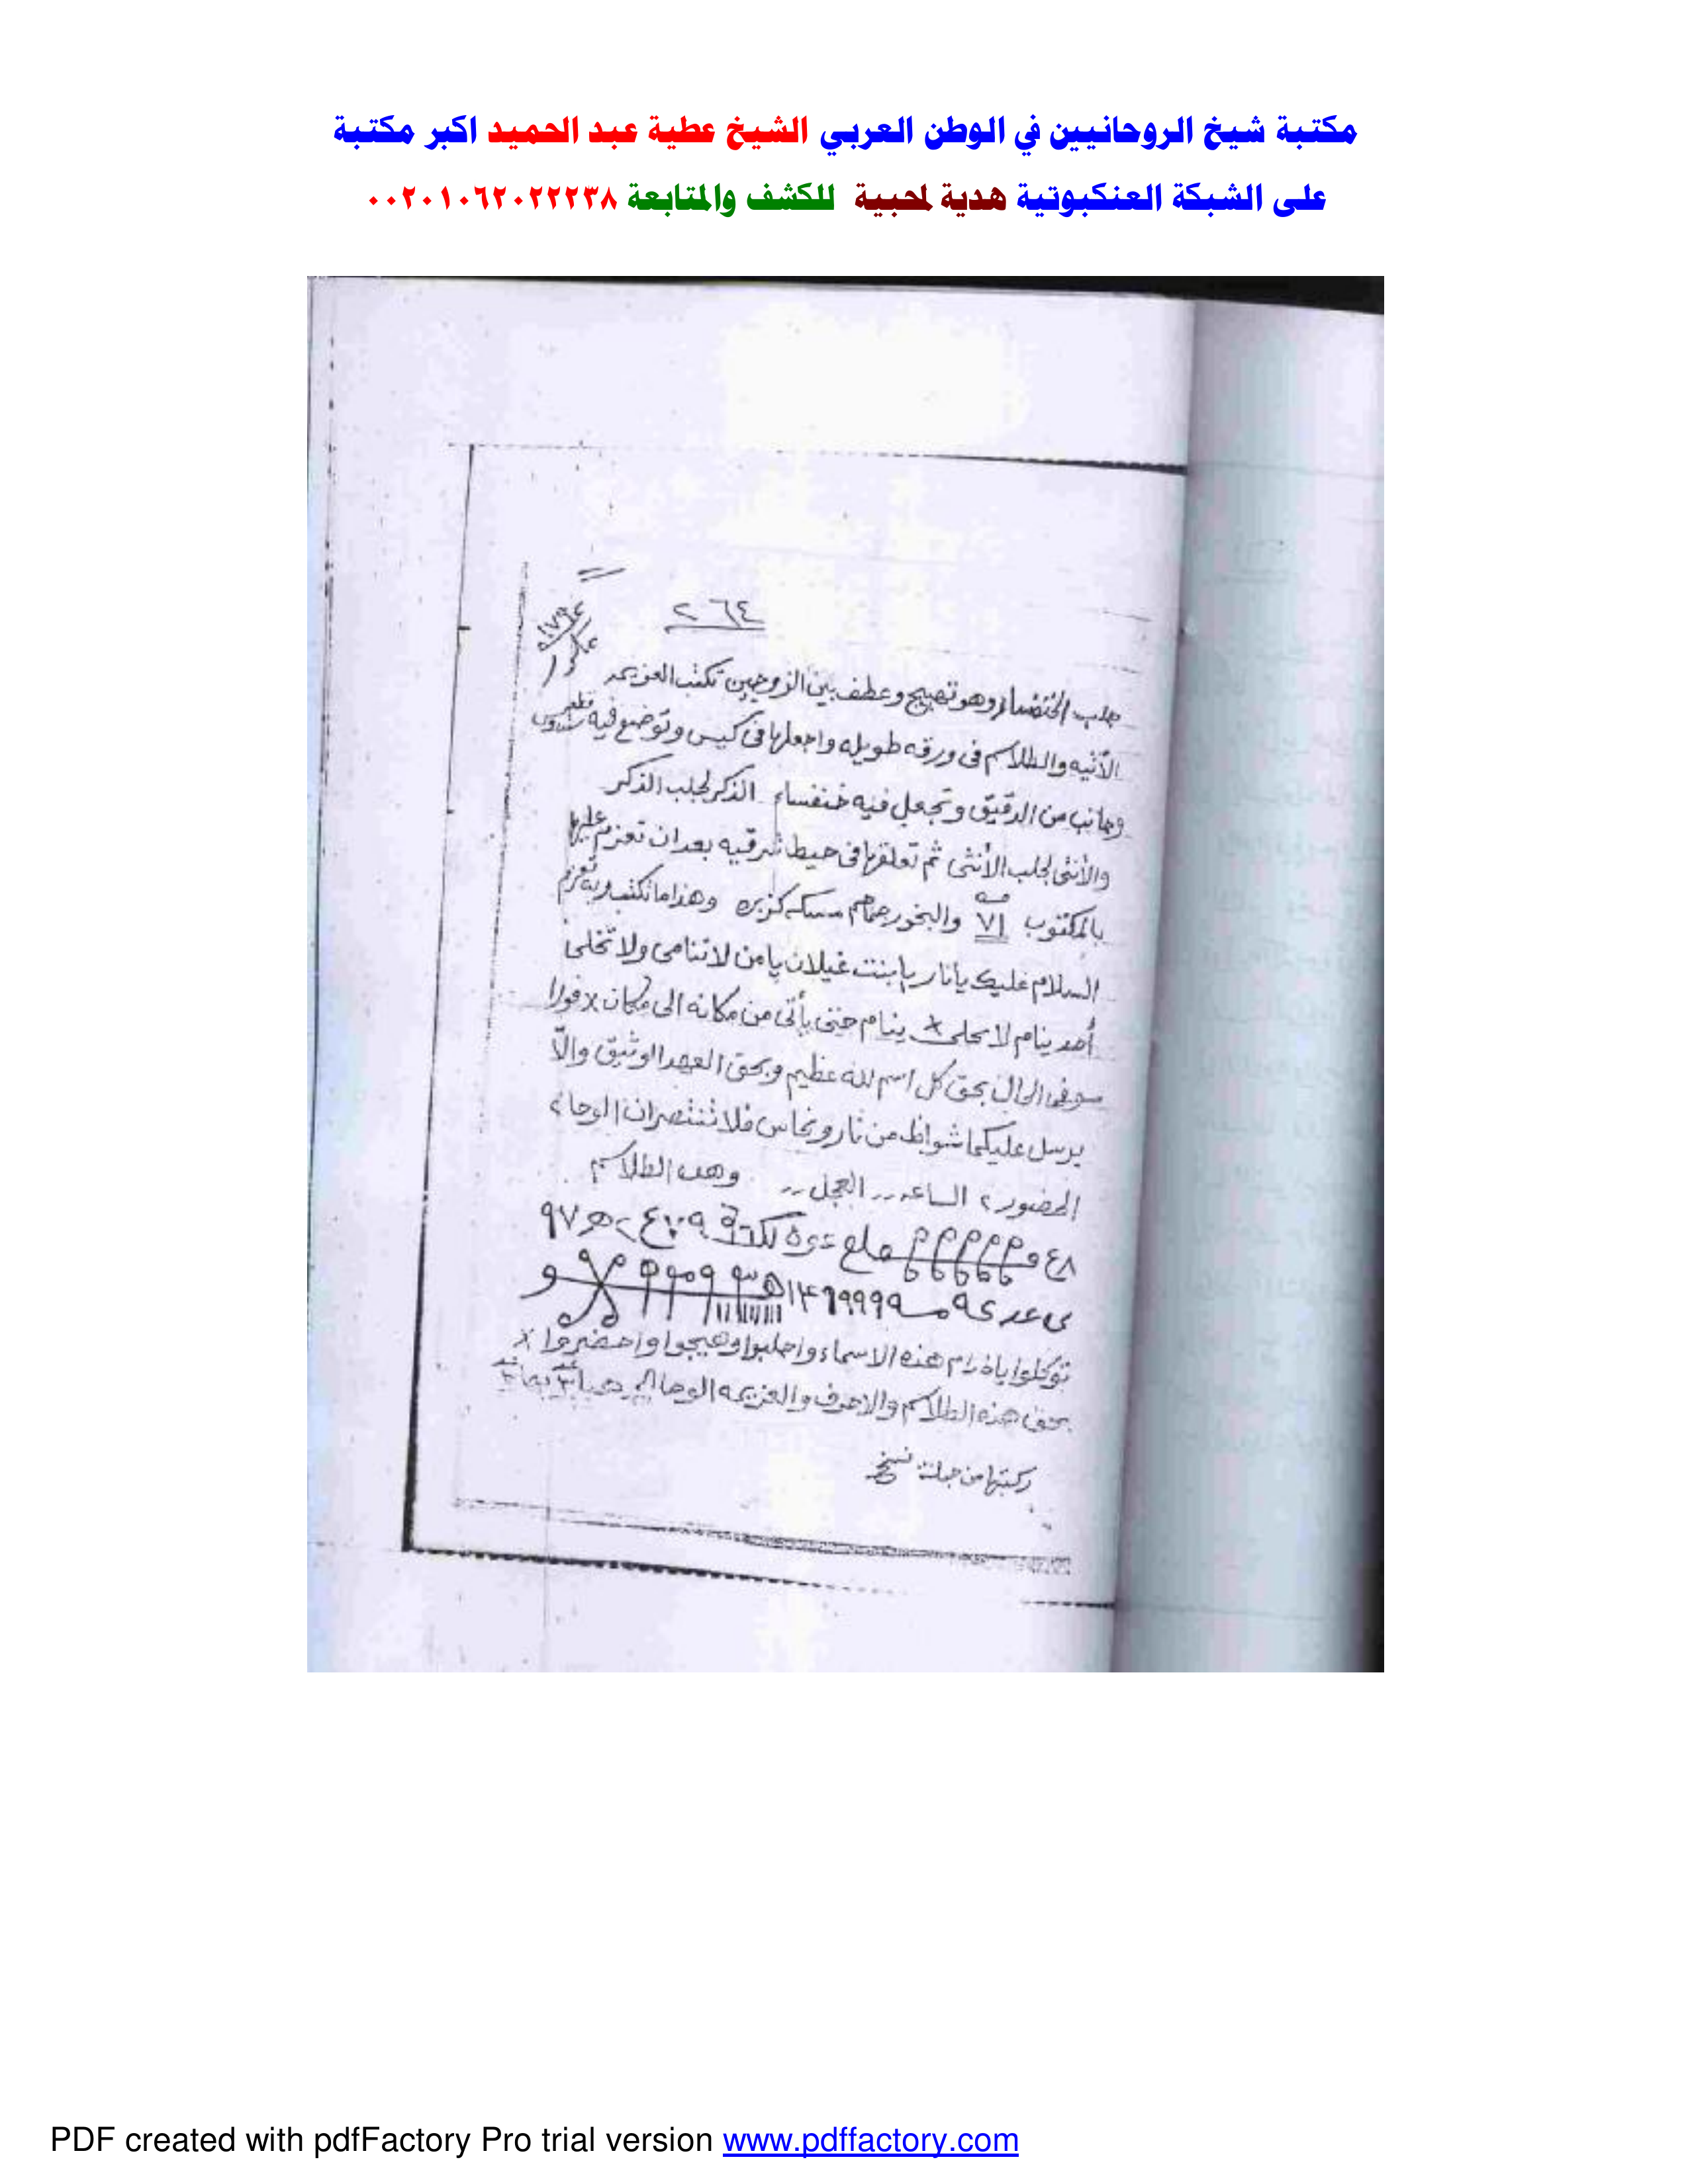 مكتبة شيخ الروحانيين في الوطن العربي الشيخ عطية عبد الحميد اكبر مكتبة
على الشبكة العنكبوتية هدية لمحبية للكشف والمتابعة ٠٠٢٠١٠٦٢٠٢٢٢٣٨
٢٦٤
جلب الخنفساء وهو تهييج وعطف بين الزوجين تكتب العزيمه
الآتيه والطلاسم فى ورقه طويله واجعلها فى كيس وتوضع فيه
وجانب من الدقيق وتجعل فيه خنفساء الذكر لجلب الذكر
والأنثى لجلب الأنثى ثم تعلقها فى حيط شرقيه بعد ان تعزم عليها
بالمكتوب ٧١ والبخور مسك كزبره وهذا ما تكتب وبه تعزم
السلام عليك يا نار يا بنت غيلان يا من لا تنامى ولا تخلى
أحد ينام لا ينام حتى يأتى من مكانه الى مكان x فورا
الحال بحق كل اسم لله عظيم وبحق العهد الوثيق والّا
يرسل عليكما شواظ من نار ونحاس فلا تنتصران الوحا ٢
الحضور ٢ الساعه العجل وهذه الطلاسم
توكلوا يا خدام هذه الاسماء واجلبوا وهيجوا واحضروا x
بحق هذه الطلاسم والاحرف والعزيمه الوحا
ركبتها من جملة نسخ
PDF created with pdfFactory Pro trial version www.pdffactory.com